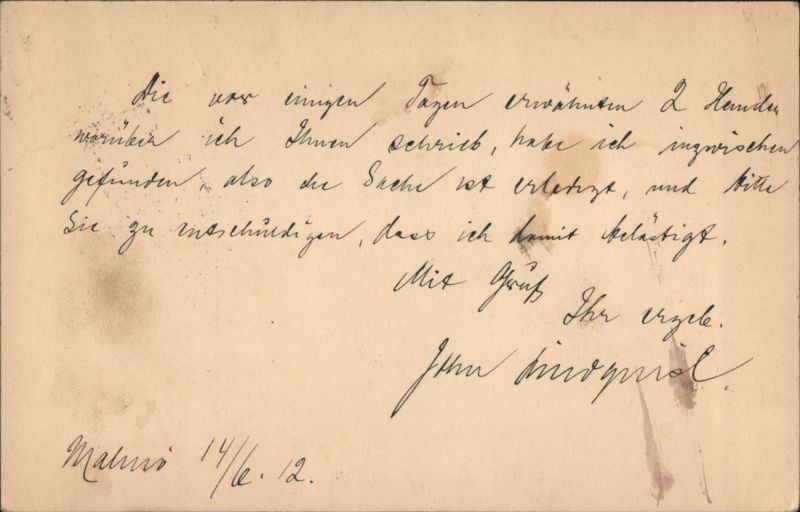 Die vor einigen Tagen erwähnten 2 Hemden
worüber ich Ihnen schrieb, habe ich inzwischen
gefunden, also die Sache ist erledigt, und bitte
Sie zu entschuldigen, dass ich damit belästigt.
Mit Gruß
Ihr ergeb.
John Lindquist.
Malmö 14/6. 12.